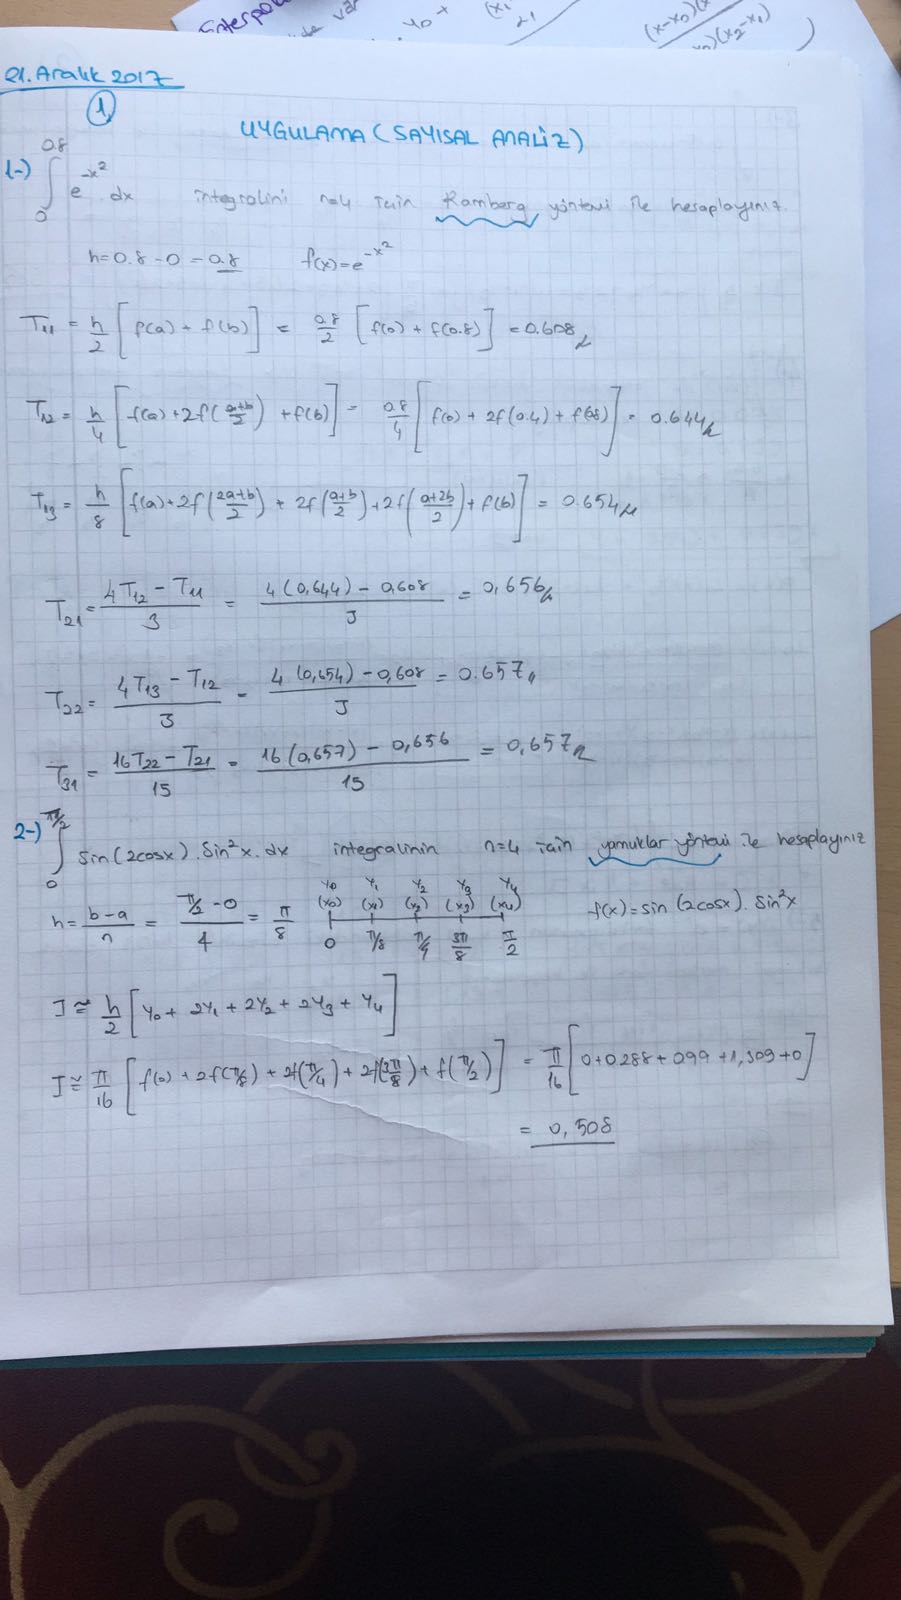 21. Aralık 2017
①
UYGULAMA (SAYISAL ANALİZ)
1-) ∫₀^0.8 e^-x² . dx integralini n=4 için Ramberg yöntemi ile hesaplayınız.
h=0.8-0=0.8 f(x)=e^-x²
T₁₁ = h/2 [f(a) + f(b)] = 0.8/2 [f(0) + f(0.8)] = 0.608
T₁₂ = h/4 [f(a)+2f(a+b/2) + f(b)] = 0.8/4 [f(0) + 2f(0.4) + f(0.8)] = 0.644
T₁₃ = h/8 [f(a)+2f(2a+b/2) + 2f(a+b/2)+2f(a+2b/2)+f(b)] = 0.654
T₂₁ = 4T₁₂ - T₁₁/3 = 4(0,644) - 0,608/3 = 0,656
T₂₂ = 4T₁₃ - T₁₂/3 = 4(0,654) - 0,608/3 = 0.657
T₃₁ = 16T₂₂ - T₂₁/15 = 16(0,657) - 0,656/15 = 0,657
2-) ∫₀^π/2 sin(2cosx).sin²x.dx integralinin n=4 için yamuklar yöntemi ile hesaplayınız
y₀ y₁ y₂ y₃ y₄
(x₀) (x₁) (x₂) (x₃) (x₄)
h = b-a/n = π/2-0/4 = π/8 f(x)=sin(2cosx).sin²x
0 π/8 π/4 3π/8 π/2
I ≅ h/2 [y₀ + 2y₁ + 2y₂ + 2y₃ + y₄]
I ≅ π/16 [f(0) + 2f(π/8) + 2f(π/4) + 2f(3π/8) + f(π/2)] = π/16 [0+0.288+0.99+1,309+0]
= 0,508